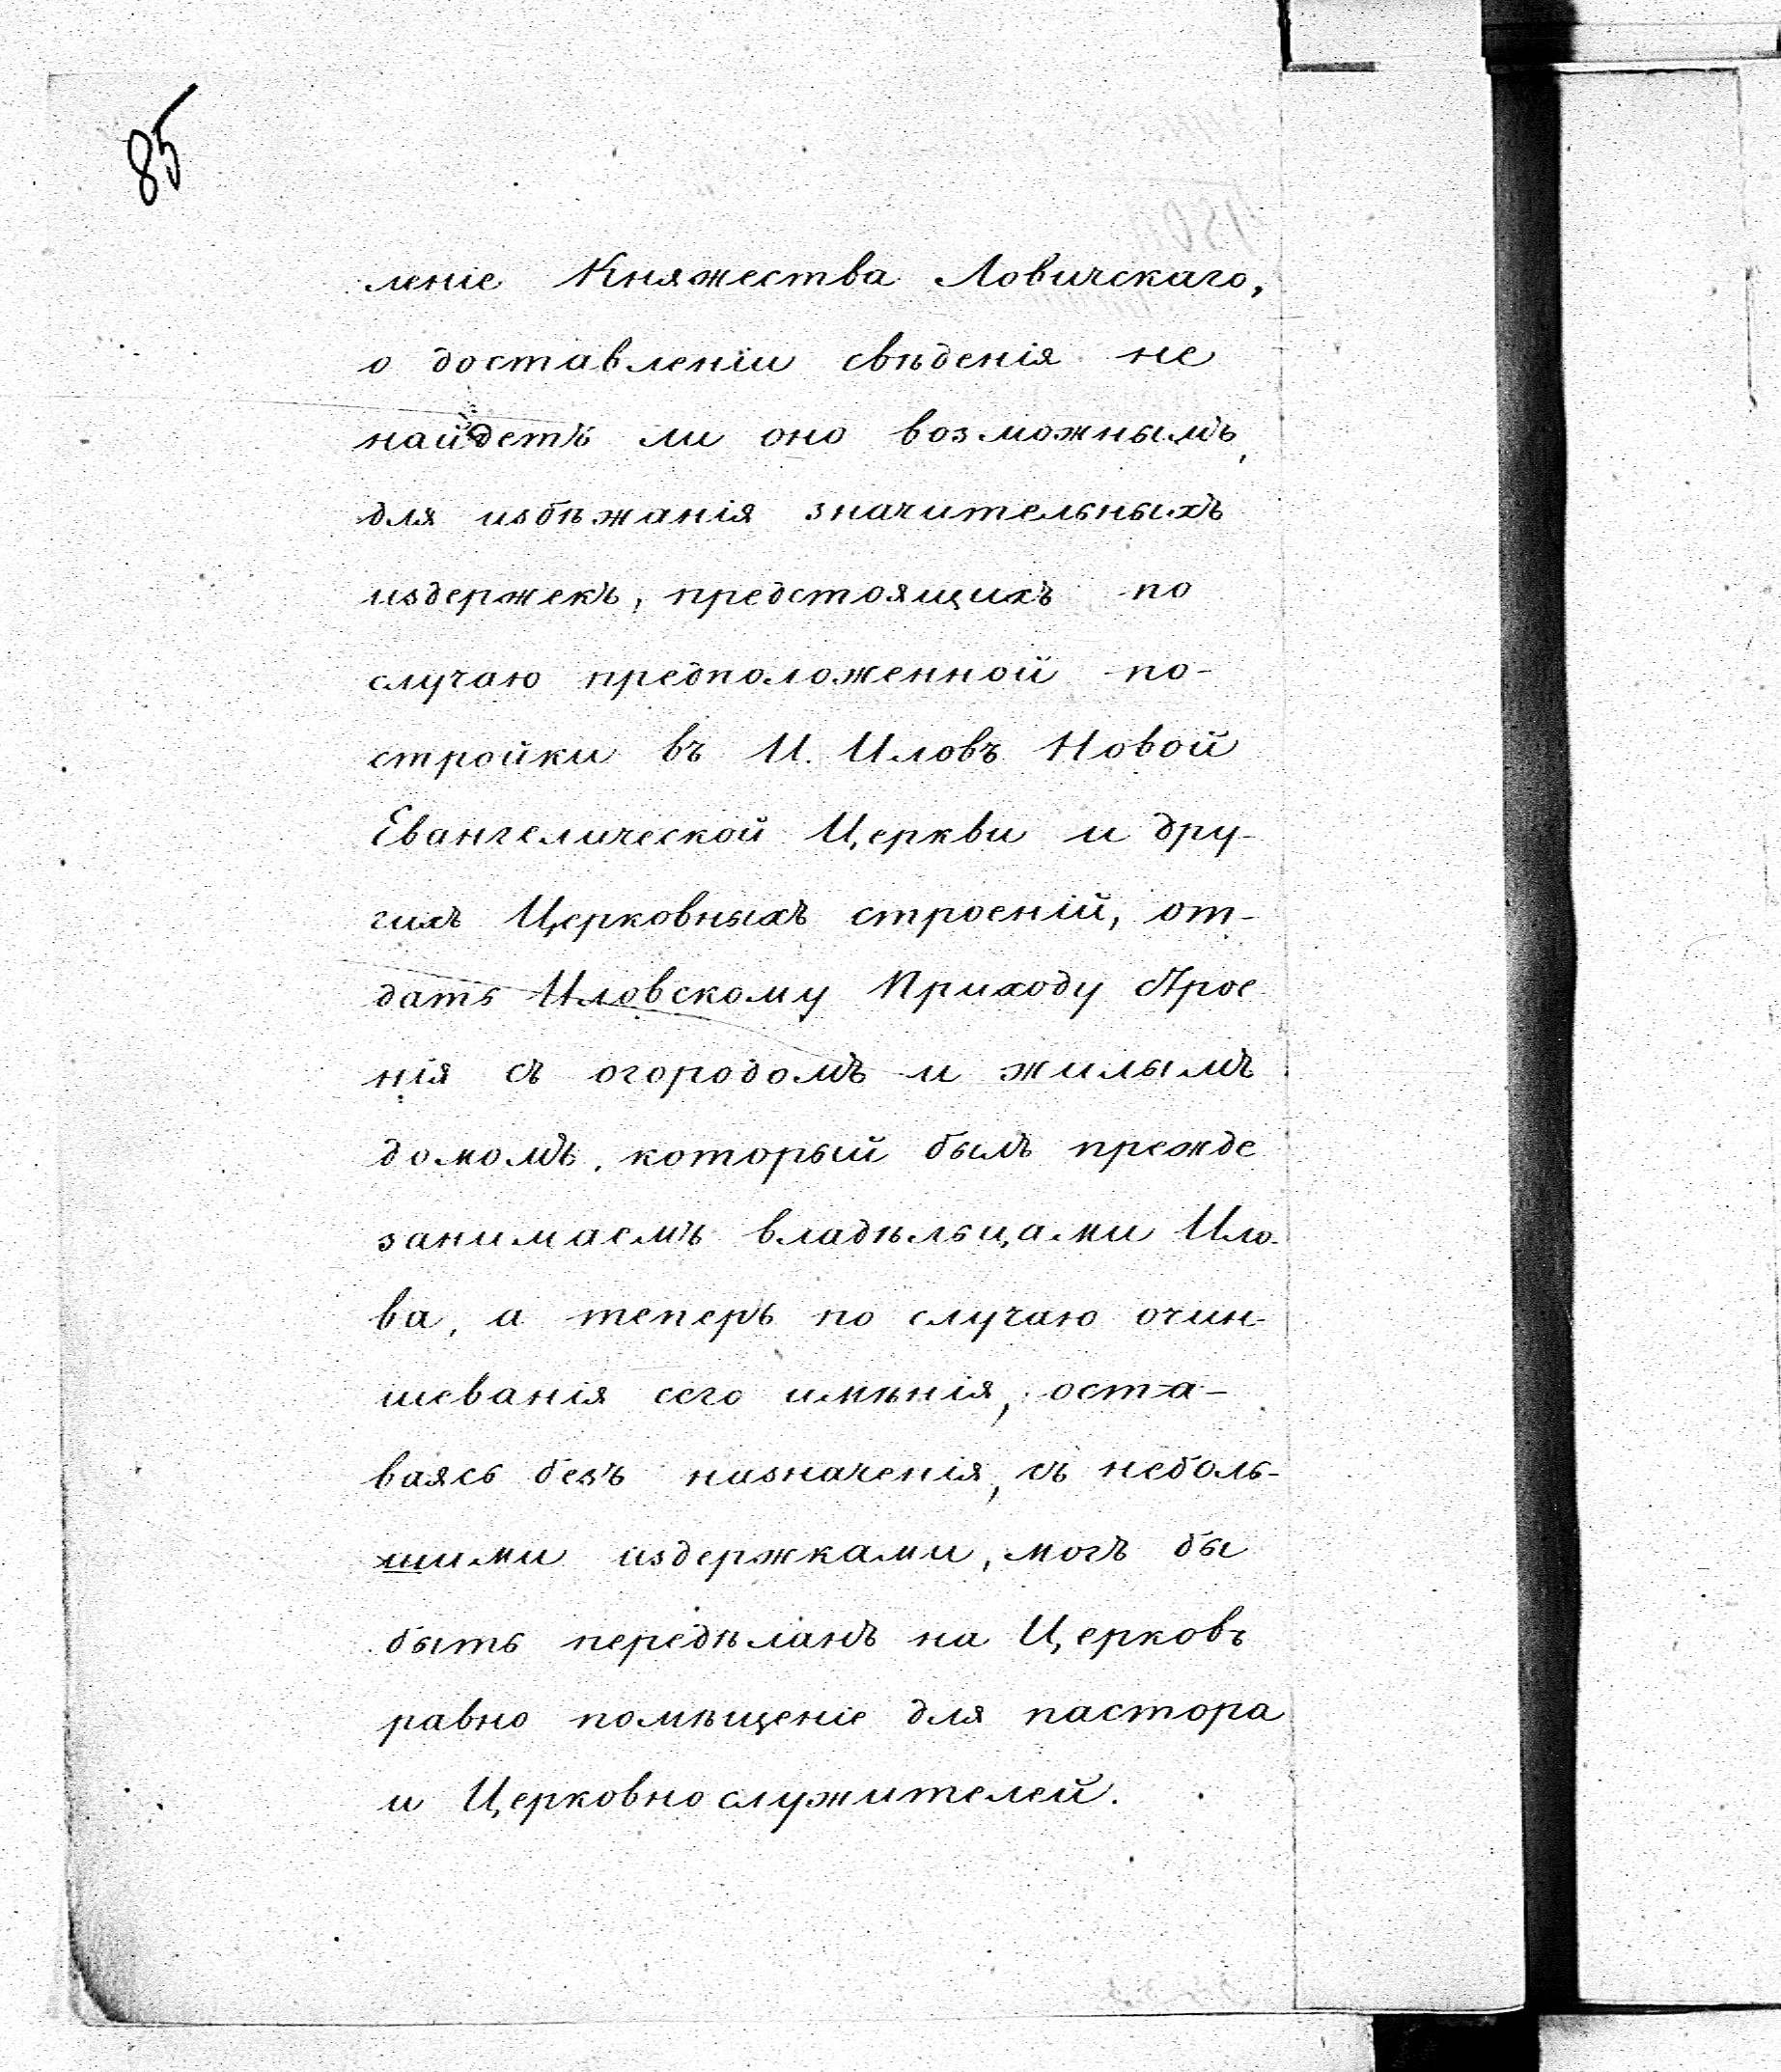 85
леніе Княжества Ловичскаго,
о доставленіи свѣденія не
найдетъ ли оно возможнымъ,
для избѣжанія значительныхъ
издержекъ, предстоящихъ по
случаю предположенной по-
стройки въ И. Иловъ Новой
Евангелической Церкви и дру-
гихъ Церковныхъ строеній, от-
дать Иловскому Приходу строе
нія съ огородомъ и жилымъ
домомъ, который былъ прежде
занимаемъ владѣльцами Ило-
ва, а теперь по случаю очин-
шеванія сего имѣнія, оста-
ваясь безъ назначенія, съ неболь-
шими издержками, могъ бы
быть передѣланъ на Церковь
равно помѣщеніе для пастора
и Церковнослужителей.